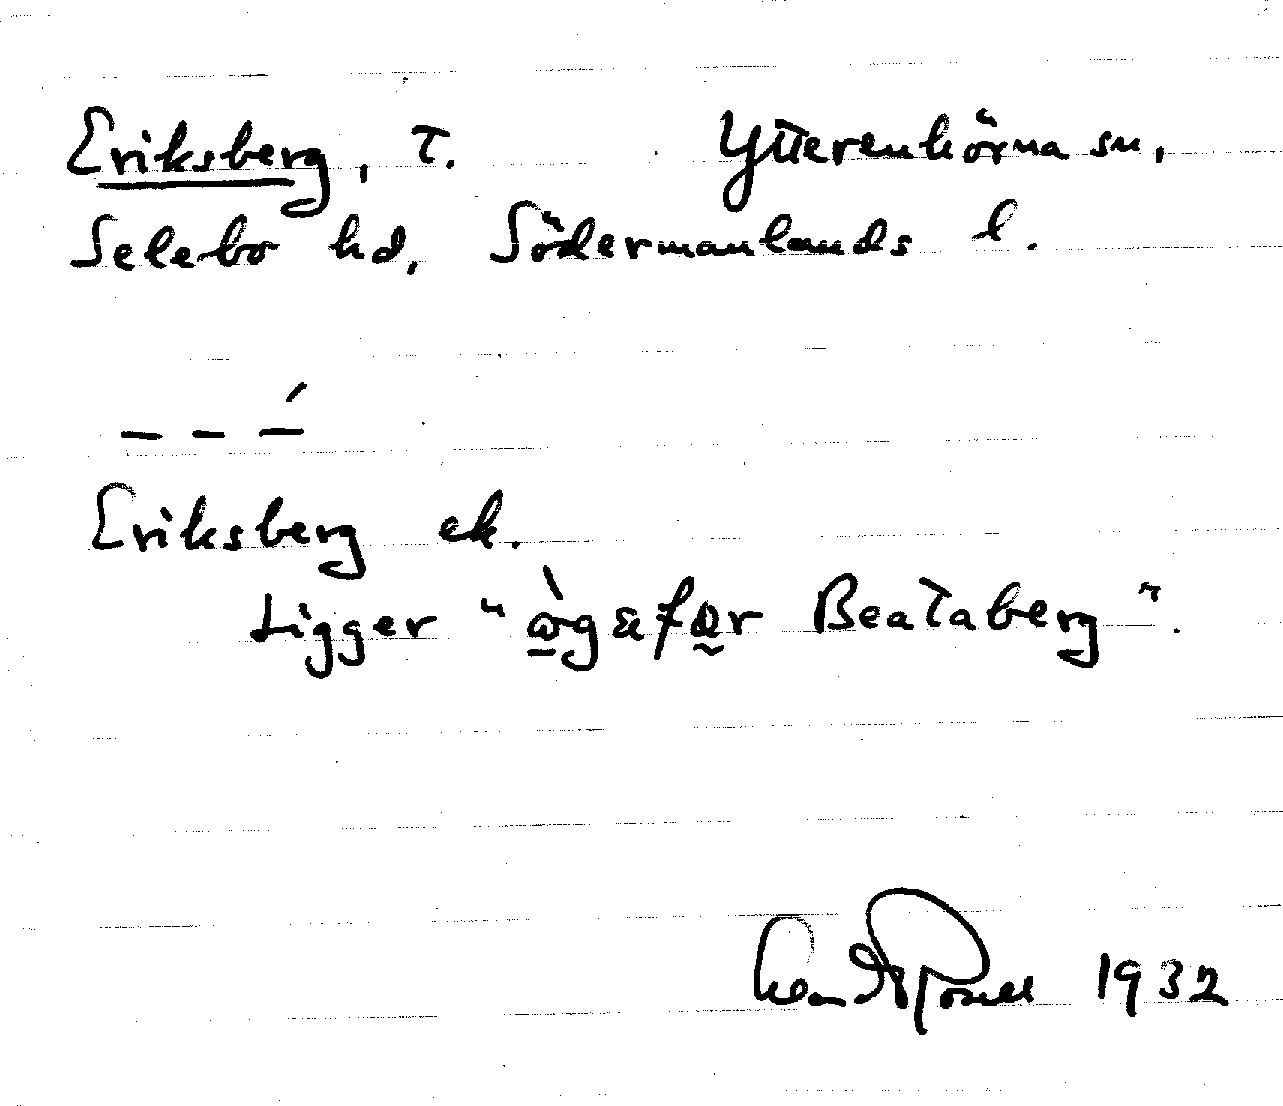 Eriksberg, T. Ytterenhörna sn,
Selebo hd, Södermanlands l.
– – –́
Eriksberg ek.
Ligger "
Beataberg".
1932